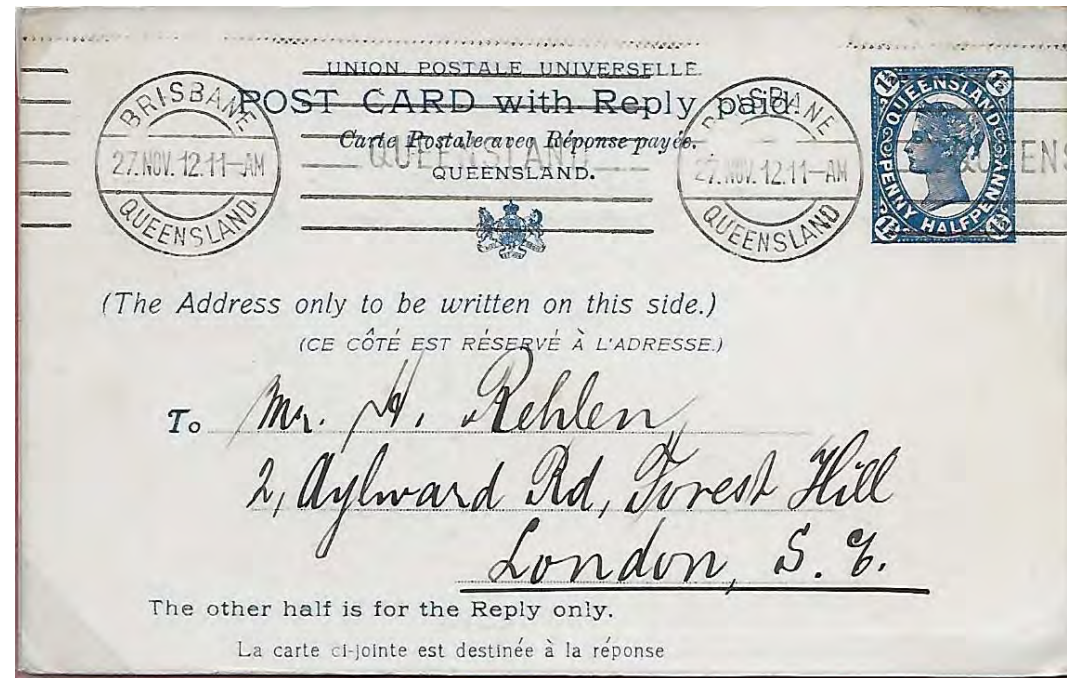 UNION POSTALE UNIVERSELLE.
POST CARD with Reply paid.
Carte Postale avec Réponse payée.
QUEENSLAND.
BRISBANE
27.NOV.12.11-AM
QUEENSLAND
QUEENSLAND
BRISBANE
27.NOV.12.11-AM
QUEENSLAND
QUEENS
1½ 1½
QUEENSLAND
PENNY HALFPENNY
1½ 1½
(The Address only to be written on this side.)
(CE CÔTÉ EST RÉSERVÉ À L'ADRESSE.)
To Mr. H. Rehlen,
2, Aylward Rd, Forest Hill
London, S. E.
The other half is for the Reply only.
La carte ci-jointe est destinée à la réponse